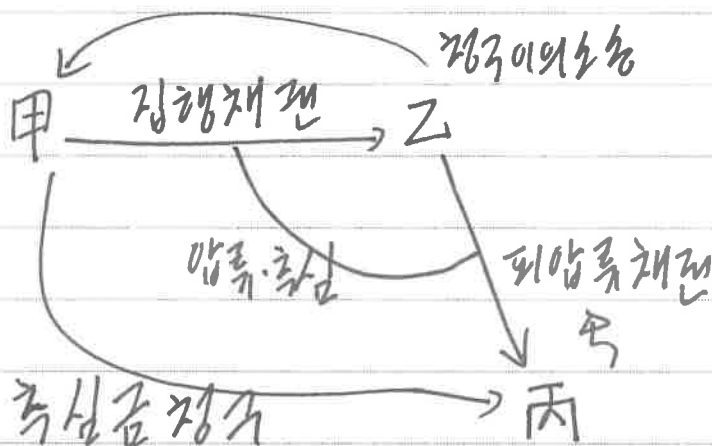 청구이의소송
甲 집행채권 乙
압류·추심 피압류채권
추심금청구 丙